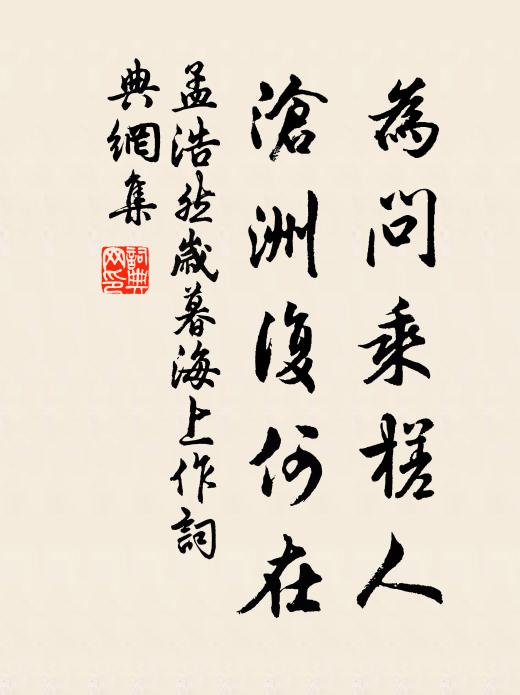 為問乘槎人
滄洲復何在
孟浩然歲暮海上作詞
典網集
詞典網印